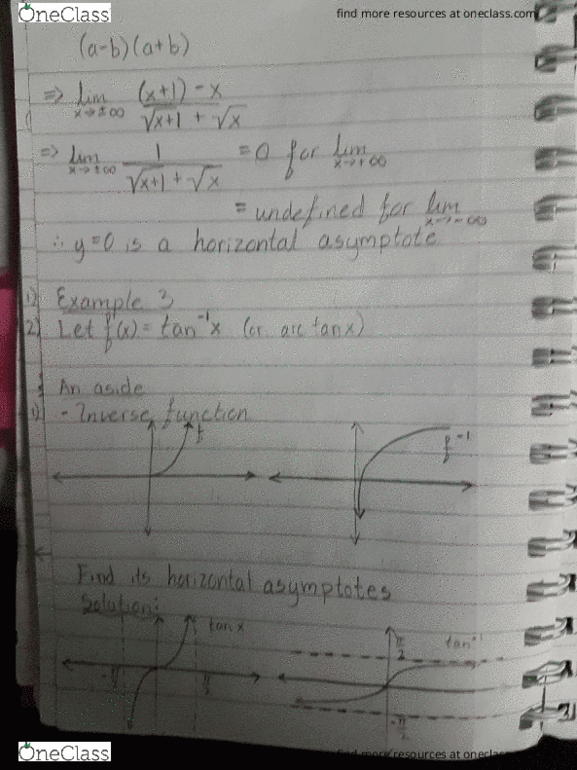 OneClass
find more resources at oneclass.com
(a-b)(a+b)
⇒ lim x→±∞ (x+1)-x / √x+1 + √x
⇒ lim x→±∞ 1 / √x+1 + √x = 0 for lim x→+∞
= undefined for lim x→-∞
∴ y=0 is a horizontal asymptote
1) Example 3
2) Let f(x) = tan⁻¹x (or arc tan x)
An aside
- Inverse function
f
f⁻¹
Find its horizontal asymptotes
Solution:
tan x
π/2
tan⁻¹
-π/2
OneClass
find more resources at oneclass